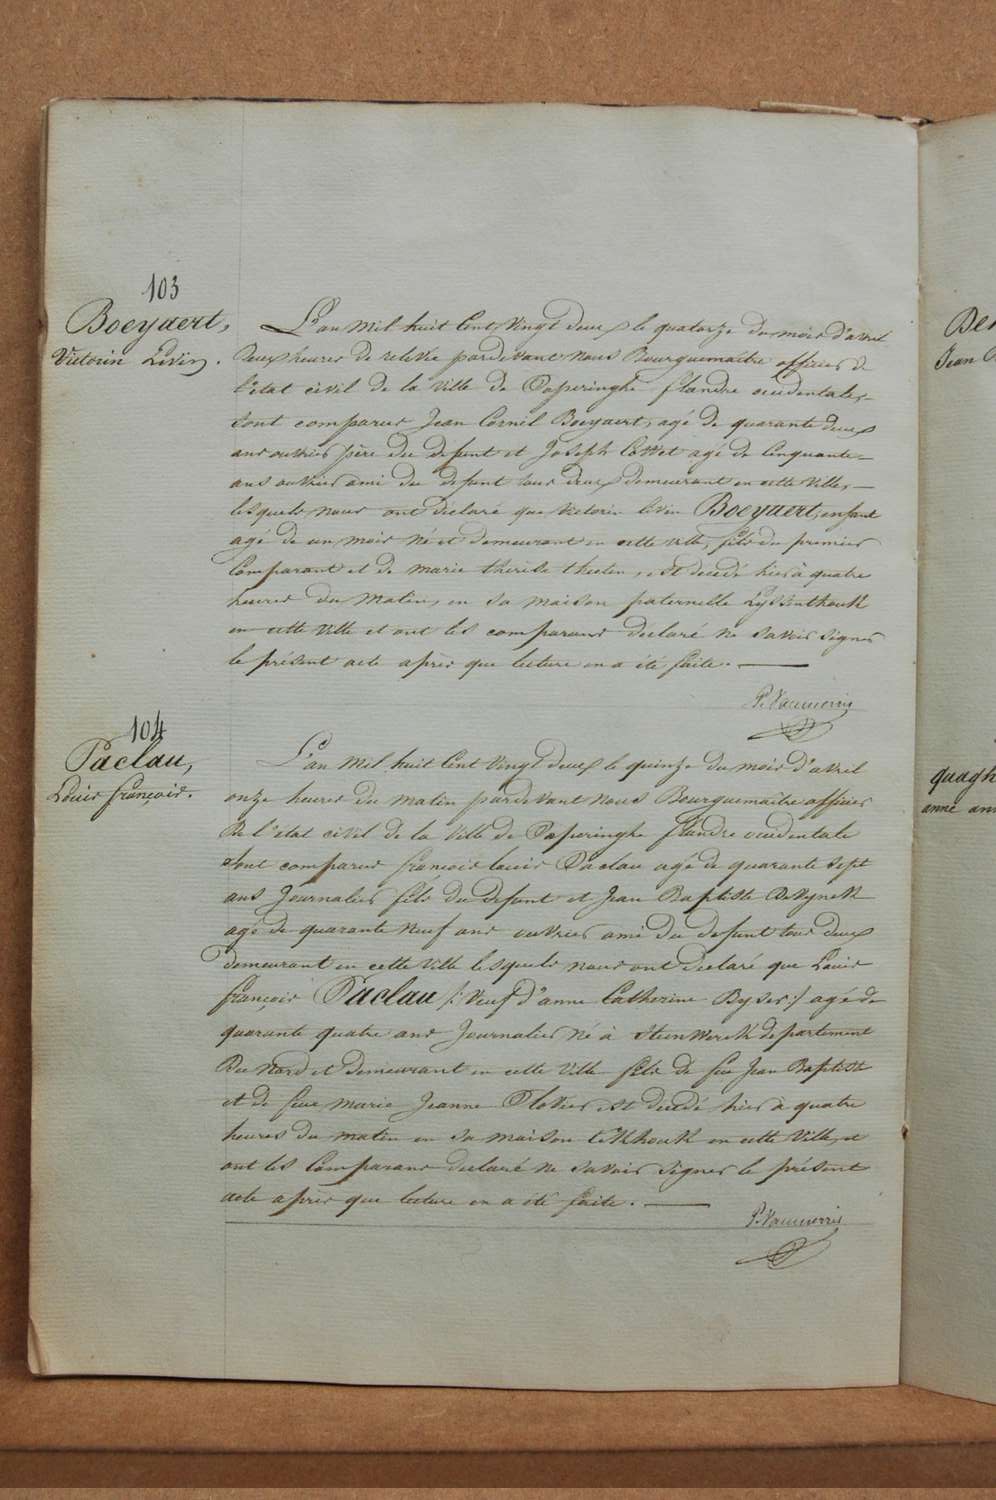 103
Boeyaert,
Victorin Livin.
L'an Mil huit Cent Vingt deux le quatorze du mois d'avril
deux heures de relevée pardevant nous Bourguemaitre officier de
l'état civil de la Ville de Poperinghe flandre occidentale,
sont comparus Jean Cornil Boeyaert, agé de quarante deux
ans ouvrier père du defunt et Joseph Cottet agé de Cinquante
ans ouvrier ami du defunt tous deux demeurant en cette Ville, —
lesquels nous ont déclaré que Victorin Livin Boeyaert, enfant
agé de un mois né et demeurant en cette ville, fils du premier
Comparant et de marie therese theeten, est decedé hier à quatre
heures du Matin, en sa maison paternelle Lyssenthouk
en cette Ville et ont les comparans declaré ne savoir signer
le présent acte après que lecture en a été faite. —
P. Vanmerris
104
Paclau,
Louis françois.
L'an Mil huit Cent Vingt deux le quinze du mois d'avril
onze heures du matin pardevant nous Bourguemaitre officier
de l'état civil de la Ville de Poperinghe flandre occidentale
sont comparus françois louis Paclau agé de quarante sept
ans Journalier fils du defunt et Jean Baptiste Devynck
agé de quarante neuf ans ouvrier ami du defunt tous deux
demeurant en cette Ville lesquels nous ont declaré que Louis
françois Paclau /: Veuf d'anne Catherine Byser :/ agé de
quarante quatre ans Journalier né à Steenwerck departement
du Nord et demeurant en cette Ville fils de feu Jean Baptiste
et de feue marie Jeanne Plotier est decedé hier à quatre
heures du matin en sa maison Eekhouk en cette Ville, et
ont les Comparans declaré ne savoir signer le présent
acte après que lecture en a été faite. —
P. Vanmerris
Jean
quagh
anne